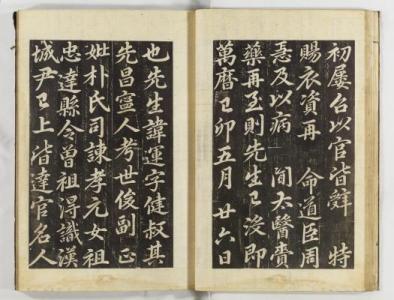 初屢召以官皆辭 特
賜衣資再 命道臣周
急及以病 聞太醫賷
藥再至則先生已沒即
萬曆己卯五月廿六日
也先生諱運字健叔其
先昌寧人考世俊副正
妣朴氏司諫孝元女祖
忠達縣令曾祖得識漢
城尹已上皆達官名人